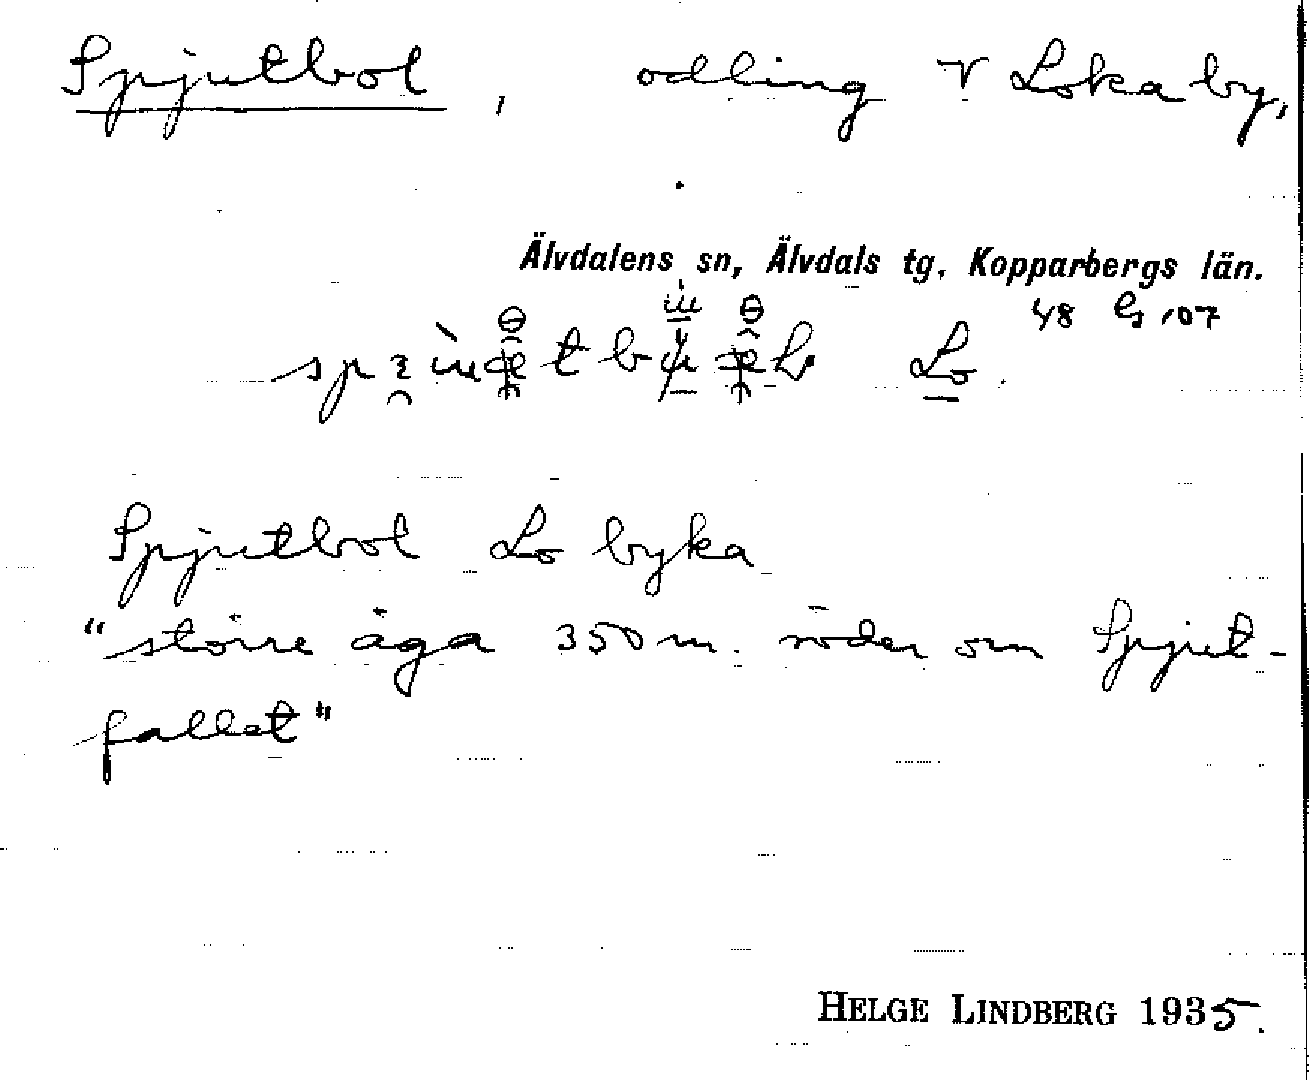 Spjutbol, odling V Loka by,
Älvdalens sn, Älvdals tg. Kopparbergs län.
48
Lo.
Spjutbol Lo byka
"större äga 350 m. söder om Spjut-
fallet"
HELGE LINDBERG 1935.